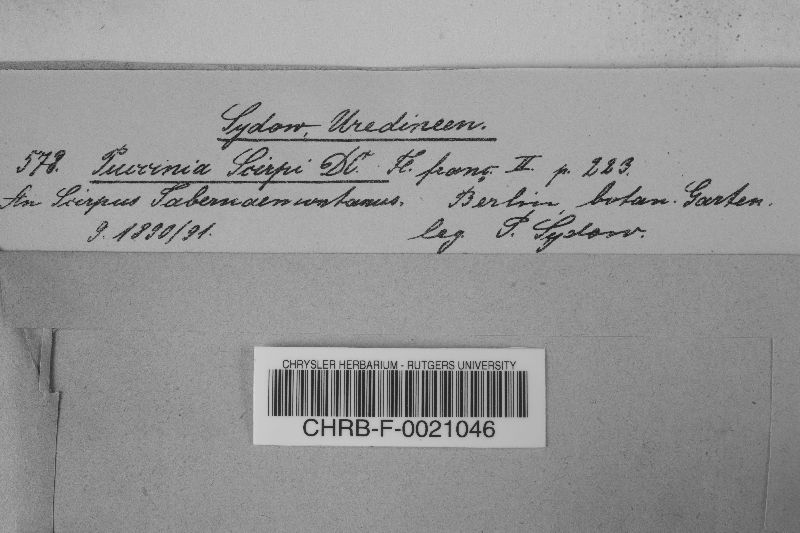 Sydow, Uredineen.
578. Puccinia Scirpi DC. Fl. franç. II p. 223.
An Scirpus Tabernaemontanus. Berlin, botan. Garten.
9. 1890/91. leg. P. Sydow.
CHRYSLER HERBARIUM - RUTGERS UNIVERSITY
CHRB-F-0021046